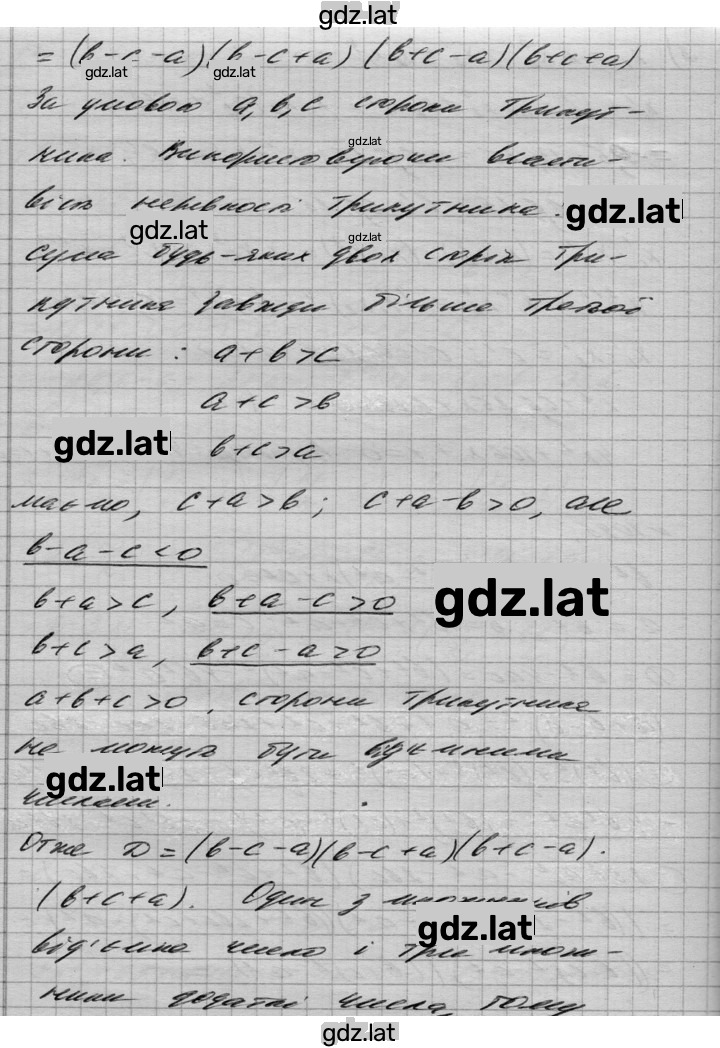 gdz.lat
= (b-c-a)(b-c+a)(b+c-a)(b+c+a)
gdz.lat gdz.lat
За умовою a, b, c сторони трикут-
gdz.lat
ника. Використовуючи власти-
вість нерівності трикутника.
gdz.lat
gdz.lat
gdz.lat
сума будь-яких двох сторін три-
кутника завжди більше третьої
сторони: a+b>c
a+c>b
gdz.lat
b+c>a
маємо, c+a>b; c+a-b>0, але
b-a-c<0
b+a>c, b+a-c>0
gdz.lat
b+c>a, b+c-a>0
a+b+c>0, сторони трикутника
не можуть бути від'ємними
gdz.lat
числами.
Отже D=(b-c-a)(b-c+a)(b+c-a).
(b+c+a). Один з множників
gdz.lat
від'ємне число і три множ-
ники додатні числа, тому
gdz.lat